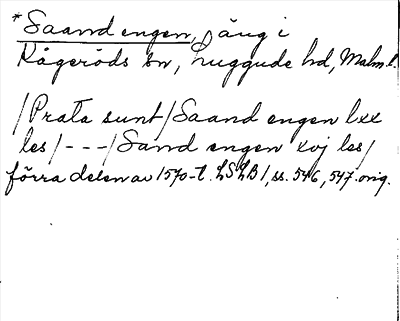 *Saand engen, äng i
Kågeröds sn, Luggude hd, Malm.l.
/Prata sunt/Saand engen lxx
les/---/Sand engen xvj les/
förra delen av 1570-t. LSLB1, ss. 546, 547. orig.